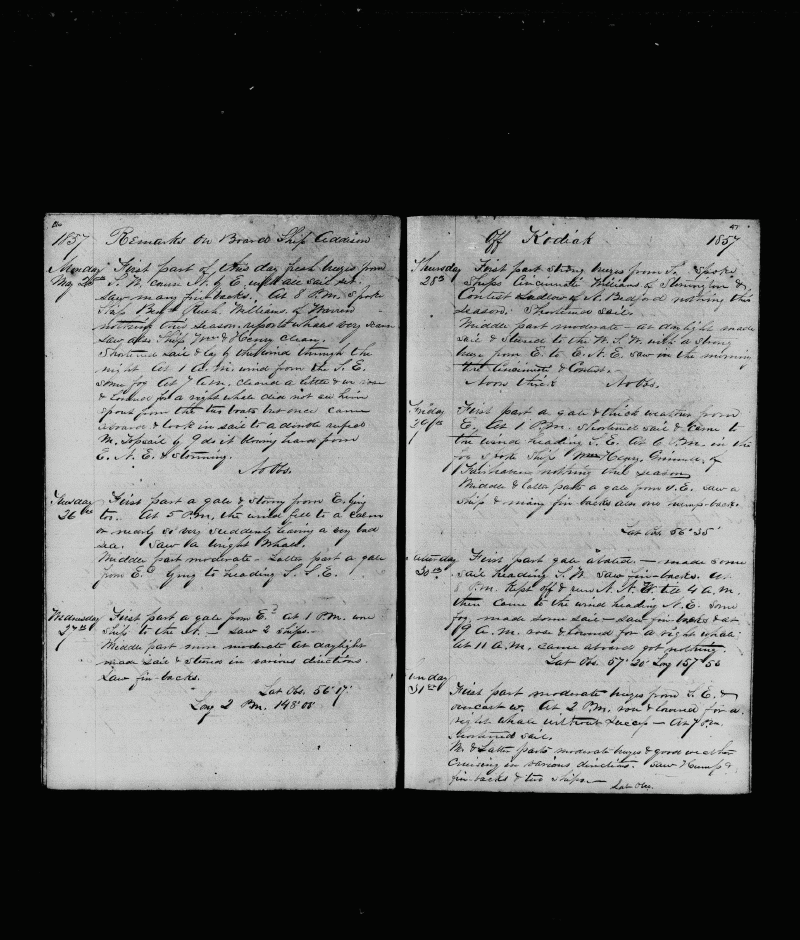 1857 Remarks on Board Ship Addison
Monday First part of this day fresh breezes from
May 25th S. W. course N. by E. with all sail set.
Saw many fin backs. At 8 P.M. spoke
Ship Benj. Rush. Williams of Warren
nothing this season. reports whales very scarce
Saw also Ship Wm & Henry clean.
Shortened sail & lay by the wind through the
night At 1 A.M. wind from the S. E.
some fog At 7 A.M. cleared a little &
& lowered for a right whale did not see him
spout from the boats but once came
aboard & took in sail to a double reefed
M. Topsail by 9 it blowing hard from
E. N. E. & storming.
No Obs.
Tuesday First part a gale & stormy from E. lying
26th too. At 5 P.M. the wind fell to a calm
or nearly so very suddenly leaving a very bad
sea. Saw a Wright Whale.
Middle part moderate - Latter part a gale
from E. lying to heading S. S. E.
Wednesday First part a gale from E. At 1 P.M. wore
27th Ship to the N. - saw 2 ships.-
Middle part more moderate At daylight
made sail & stood in various directions.
Saw fin-backs.
Lat Obs. 56° 17'
Long 2 P.M. 148° 08'
47
Off Kodiak 1857
Thursday First part strong breezes from S. Spoke
28th Ships Cincinnati Williams of Stonington &
Contest Ludlow of N. Bedford nothing this
season. Shortened sail.
Middle part moderate - at daylight made
sail & stood to the W. S. W. with a strong
breeze from E. to E. N. E. saw in the morning
the Cincinnati & Contest.
Noon thick No Obs.
Friday First part a gale & thick weather from
29th E. At 1 P.M. shortened sail & came to
the wind heading S. E. At 6 P.M. in the
fog spoke Ship Wm & Henry, Grinnell, of
Fairhaven nothing this season
Middle & Latter parts a gale from S. E. saw a
ship & many fin-backs also one hump-back.
Lat Obs. 56° 35'
Saturday First part gale abated. - made some
30th sail heading S. W. saw fin-backs. At
8 P.M. kept off & run N. N. W. till 4 A.M.
then came to the wind heading N. E. Some
fog. made some sail - saw fin-backs & at
9 A.M. & lowered for a right whale
At 11 A.M. came aboard got nothing.
Lat Obs. 57° 20' Long 157° 56
Sunday First part moderate breezes from S. E. &
31st overcast w. At 2 P.M. & lowered for a
right whale without success - At 7 P.M.
shortened sail.
M. & Latter parts moderate breezes & good weather
Cruising in various directions. Saw Humps &
fin-backs & two ships.-
Lat Obs.